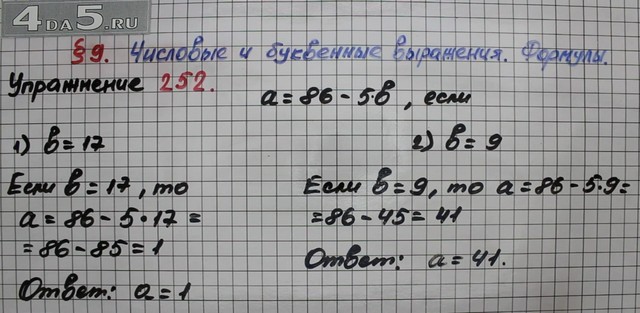 4DA5.RU
§9. Числовые и буквенные выражения. Формулы.
Упражнение 252.
a = 86 - 5·b, если
1) b = 17
Если b = 17, то
a = 86 - 5·17 =
= 86 - 85 = 1
Ответ: a = 1
2) b = 9
Если b = 9, то a = 86 - 5·9 =
= 86 - 45 = 41
Ответ: a = 41.